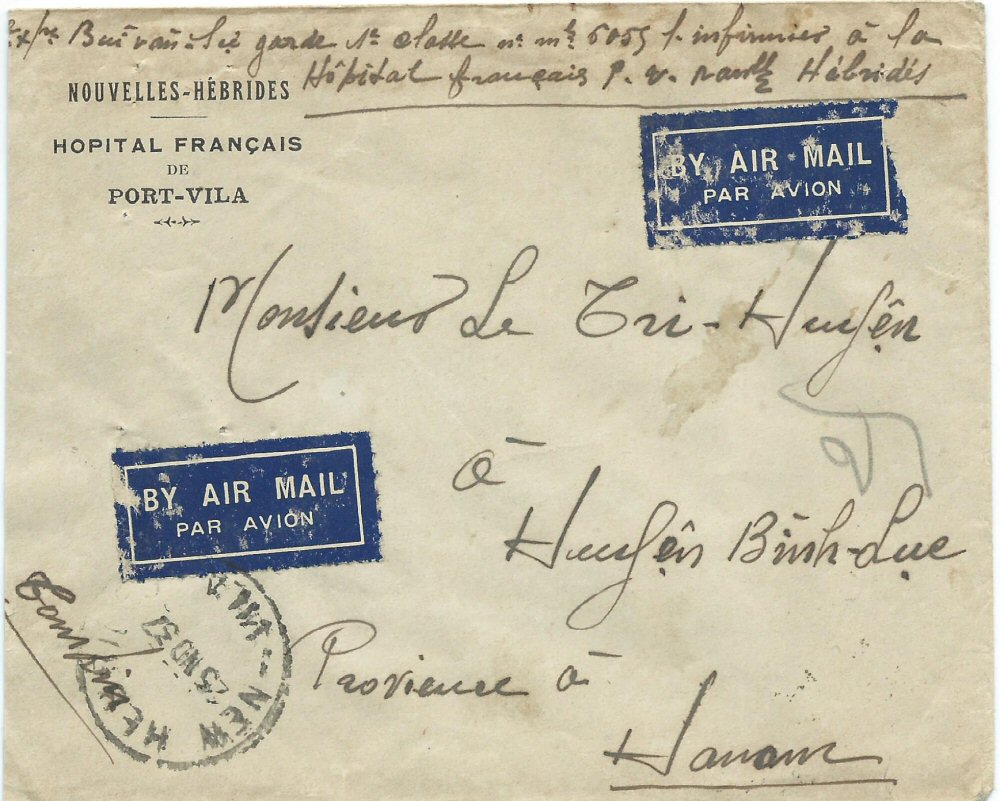 Bui van garde 1e classe no mle 6055 infirmier à la
Hôpital français P. v. Hébridés
NOUVELLES-HÉBRIDES
HOPITAL FRANÇAIS
DE
PORT-VILA
BY AIR MAIL
PAR AVION
Monsieur Le Tri-Huyên
à
Huyên Binh-Luc
Province à
Hanam
BY AIR MAIL
PAR AVION
VILA - NEW HEB
23 NO 37